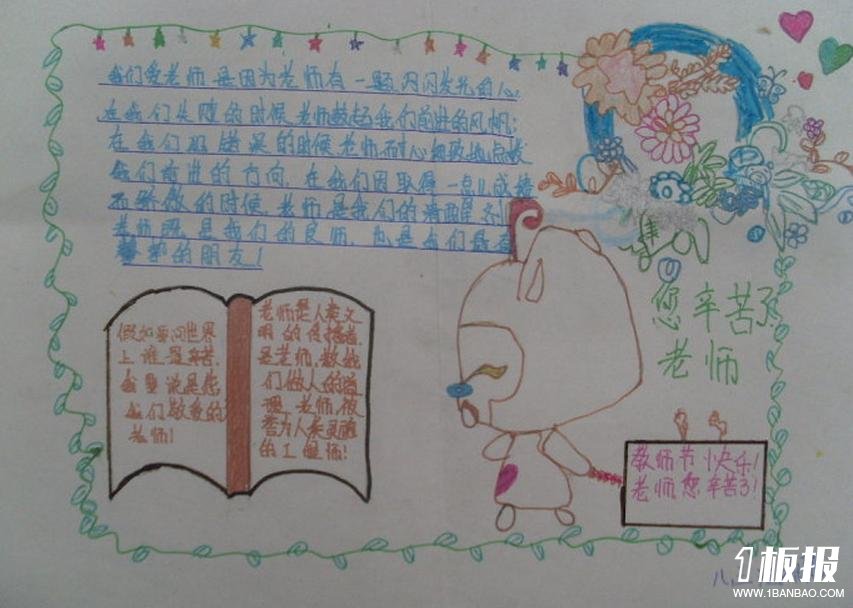 我们爱老师是因为老师有一颗闪闪发光的心.
在我们失败的时候老师鼓起我们前进的风帆;
在我们 的时候老师耐心细致地点拨
我们前进的方向.在我们因取得一点儿成绩
而骄傲的时候.老师是我们的清醒剂
老师既是我们的良师.也是我们最
的朋友!
您辛苦了
老师
假如要问世界
上谁最辛苦.
我要说是您
我们敬爱的
老师!
老师是人类文
明的传播者.
是老师.教我
们做人的道
理.老师.被
誉为人类灵魂
的工程师!
教师节快乐!
老师您辛苦了!
1板报
WWW.1BANBAO.COM